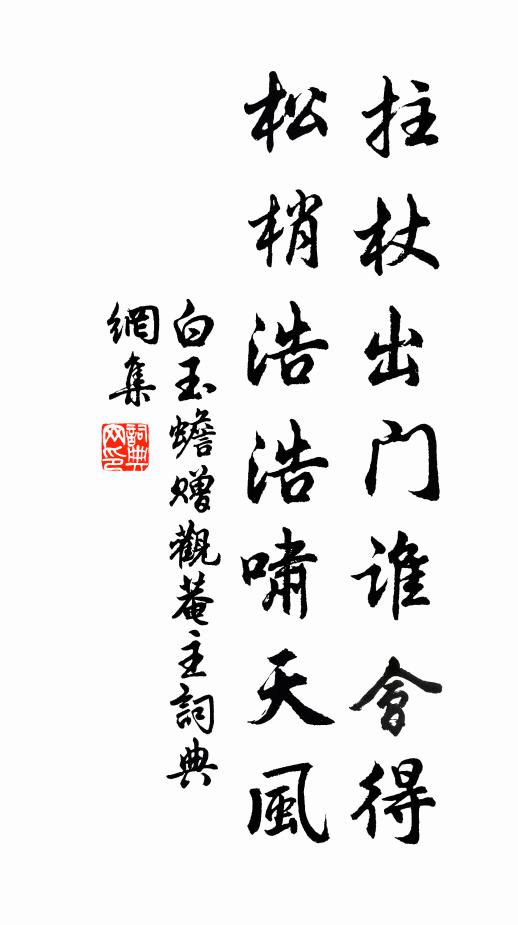 拄杖出门谁會得
松梢浩浩啸天風
白玉蟾赠觀菴主詞典
網集
詞典
网印